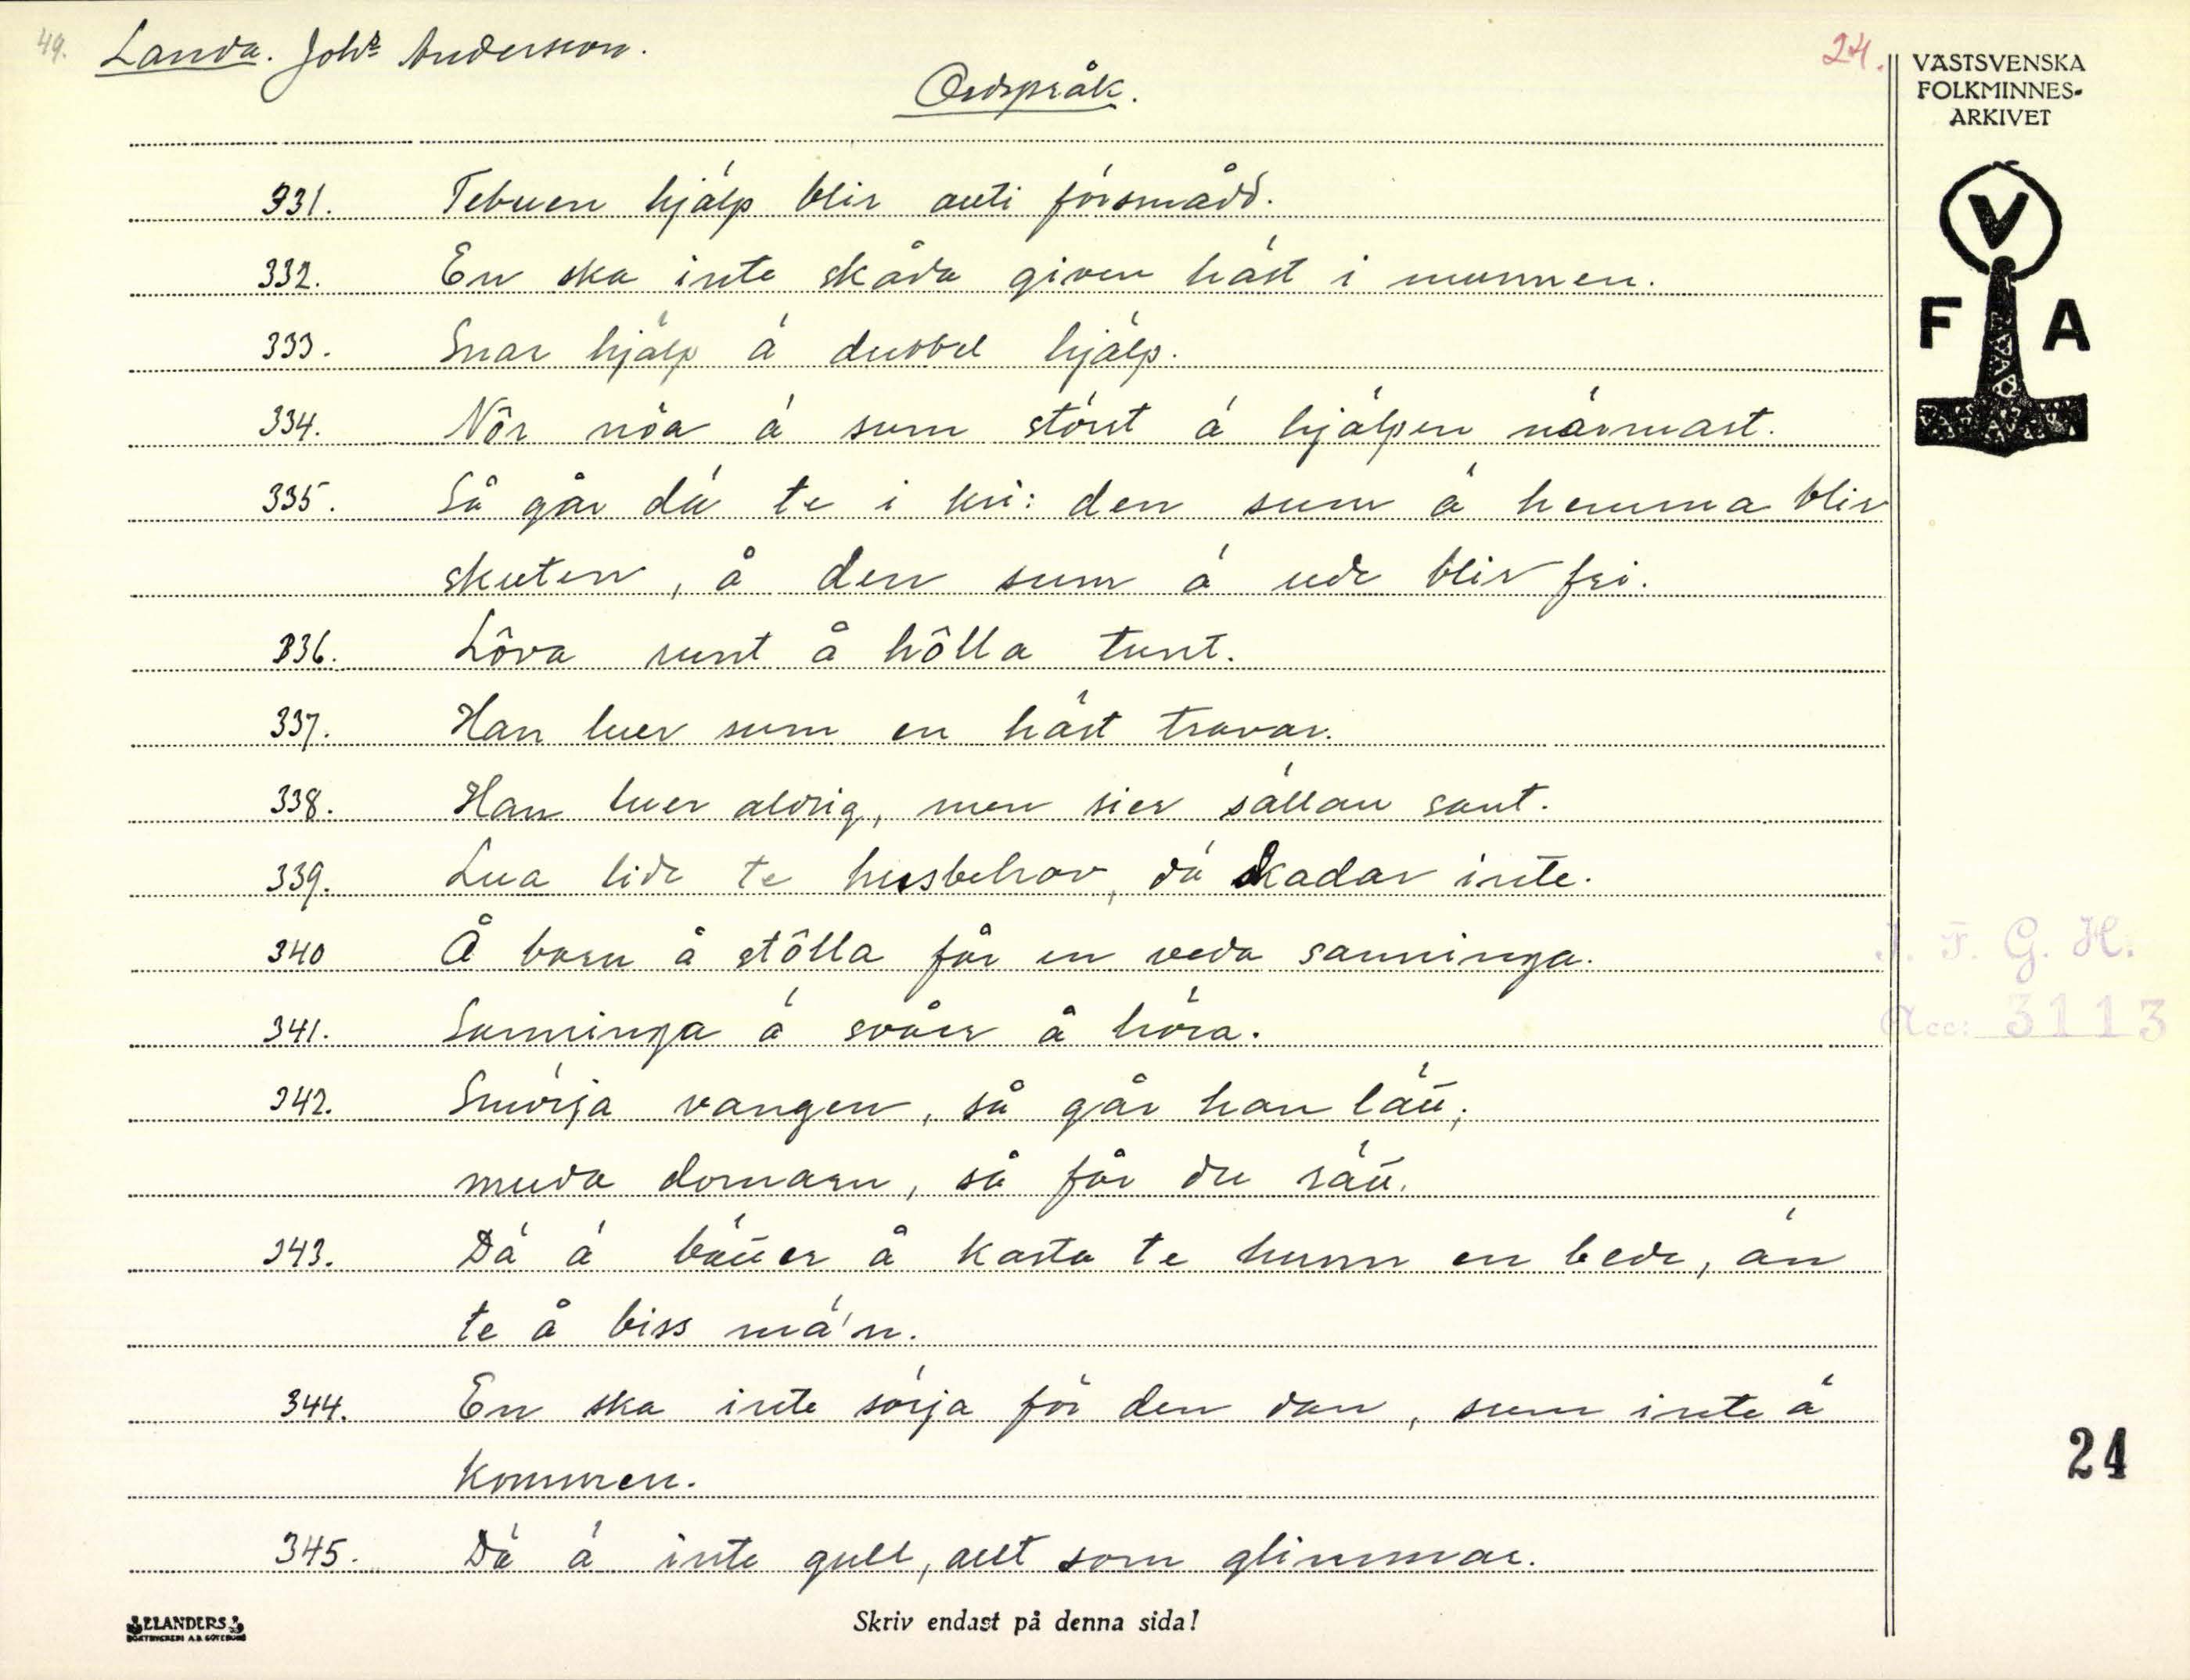 49. Landa. Johs Andersson. 24.
Ordspråk.
VÄSTSVENSKA
FOLKMINNES-
ARKIVET
V
F A
331. Tebuen hjälp blir auti försmådd.
332. En ska inte skåda given häst i munnen.
333. Snar hjälp ä dubbel hjälp.
334. Nôr nöa ä sum störst ä hjälpen närmast.
335. Så går dä te i kri: den sum ä hemma blir
skuten, å den sum ä ude blir fri.
336. Lôva runt å hôlla tunt.
337. Han luer sum en häst travar.
338. Han luer aldrig, men sier sällan sant.
339. Lua lide te husbehov, dä skadar inte.
340 Å barn å stôlla får en veda sanninga.
341. Sanninga ä svåer å höra.
342. Smörja vangen, så går han lätt;
muda domarn, så får du rätt.
343. Dä ä bätter å kasta te hunn en bede, än
te å biss mä'n.
344. En ska inte sörja för den dan, sum inte ä
kommen.
345. Dä ä inte gull, allt som glimmar.
I. F. G. H.
Acc: 3113
24
ELANDERS
BOKTRYCKERI A.B. GÖTEBORG
Skriv endast på denna sida!